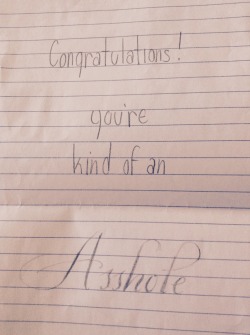 Congratulations!
you're
kind of an
Asshole